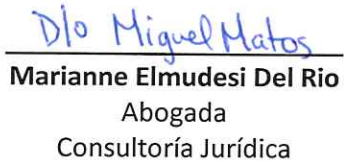 D/o Miguel Matos
Marianne Elmudesi Del Rio
Abogada
Consultoría Jurídica